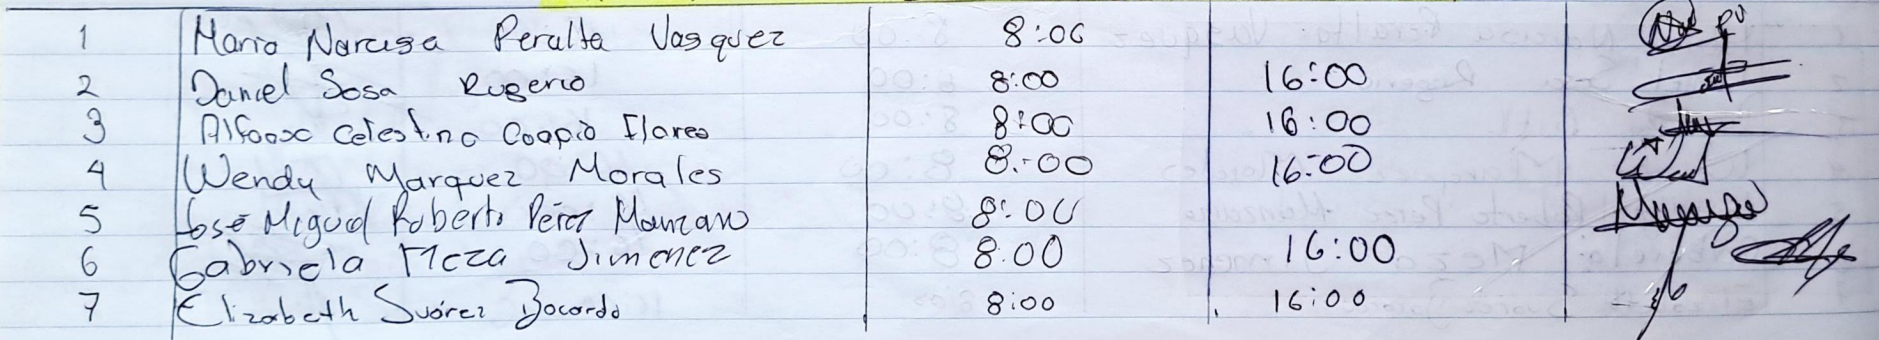 1 Maria Narcisa Peralta Vasquez 8:00
2 Daniel Sosa Rugerio 8:00 16:00
3 Alfonso Celestino Coapio Flores 8:00 16:00
4 Wendy Marquez Morales 8:00 16:00
5 José Miguel Roberto Pérez Manzano 8:00
6 Gabriela Meza Jimenez 8:00 16:00
7 Elizabeth Suárez Bocardo 8:00 16:00